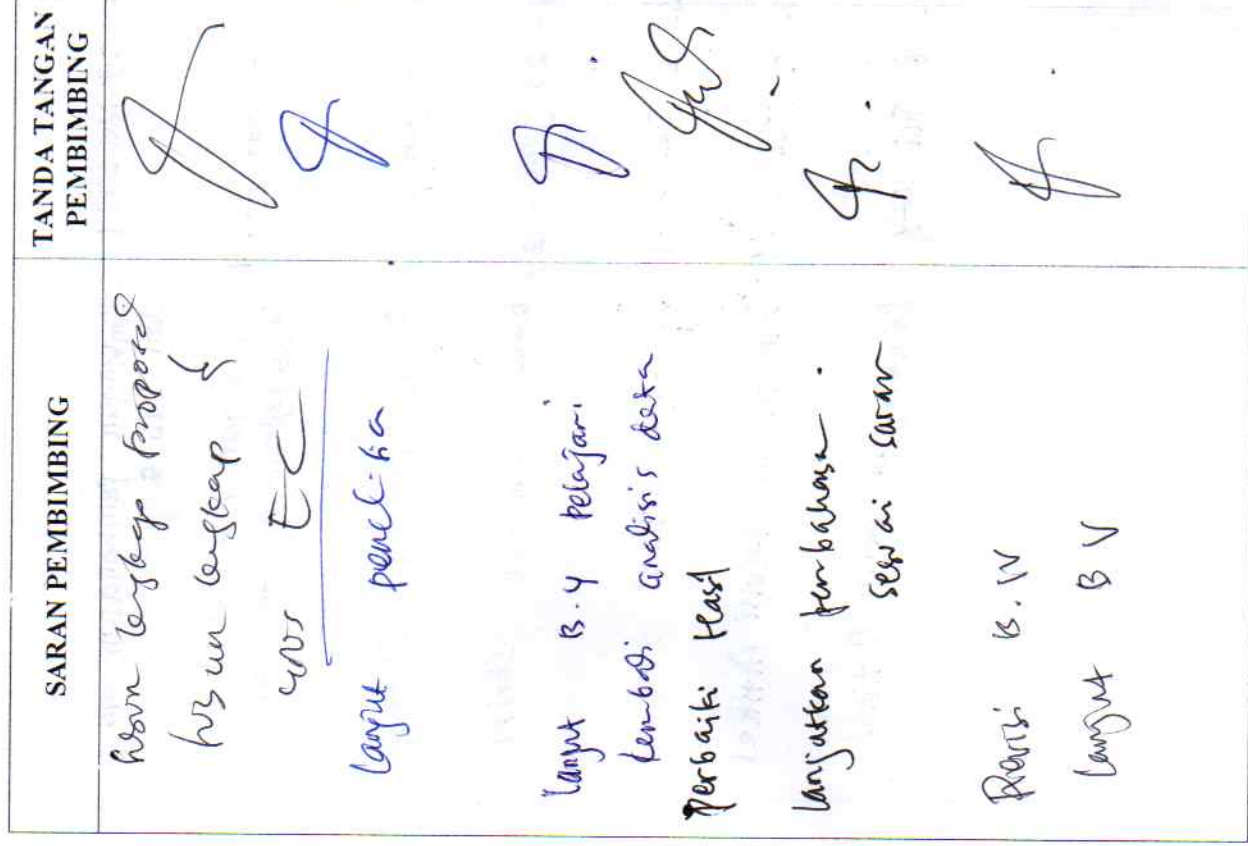 SARAN PEMBIMBING
TANDA TANGAN
PEMBIMBING
lengkap proposal
lengkap &
EC
Lanjut penelitia
Lanjut B.4 pelajari
kembali analisis data
Perbaiki Hasil
Lanjutkan pembahasa.
sesuai saran
Revisi B. IV
Lanjut B V